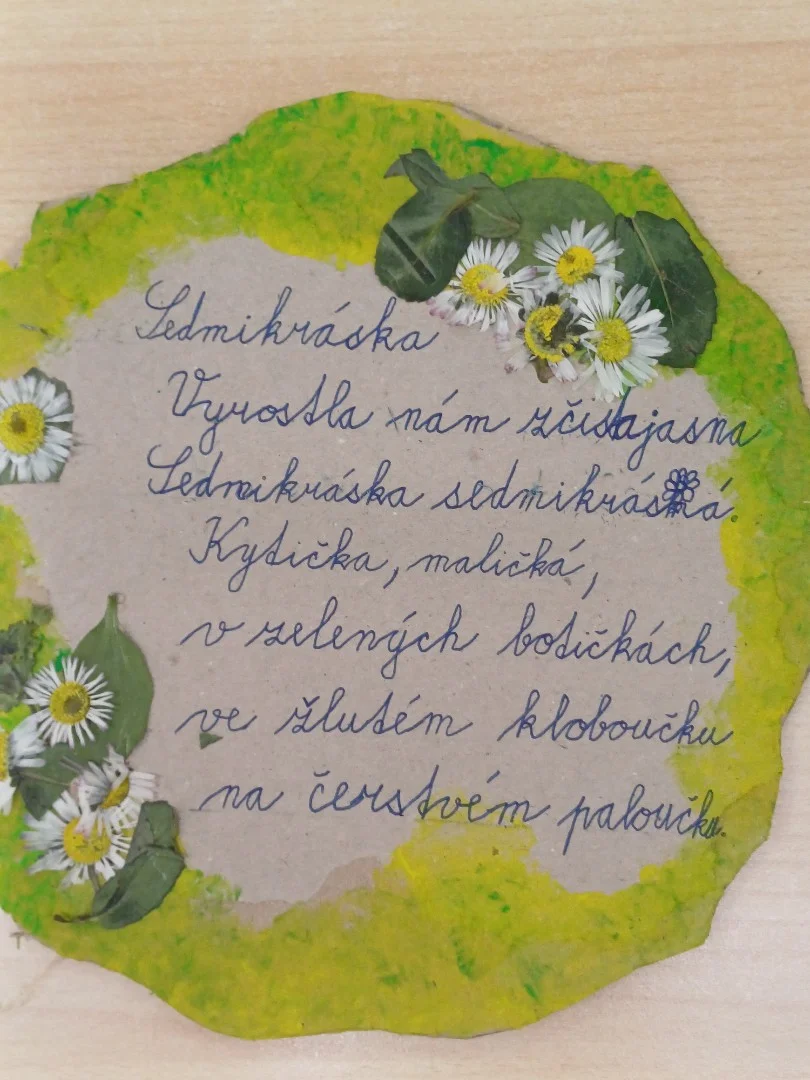 Sedmikráska
Vyrostla nám zčistajasna
Sedmikráska sedmikráska.
Kytička, maličká,
v zelených botičkách,
ve žlutém kloboučku
na čerstvém paloučku.